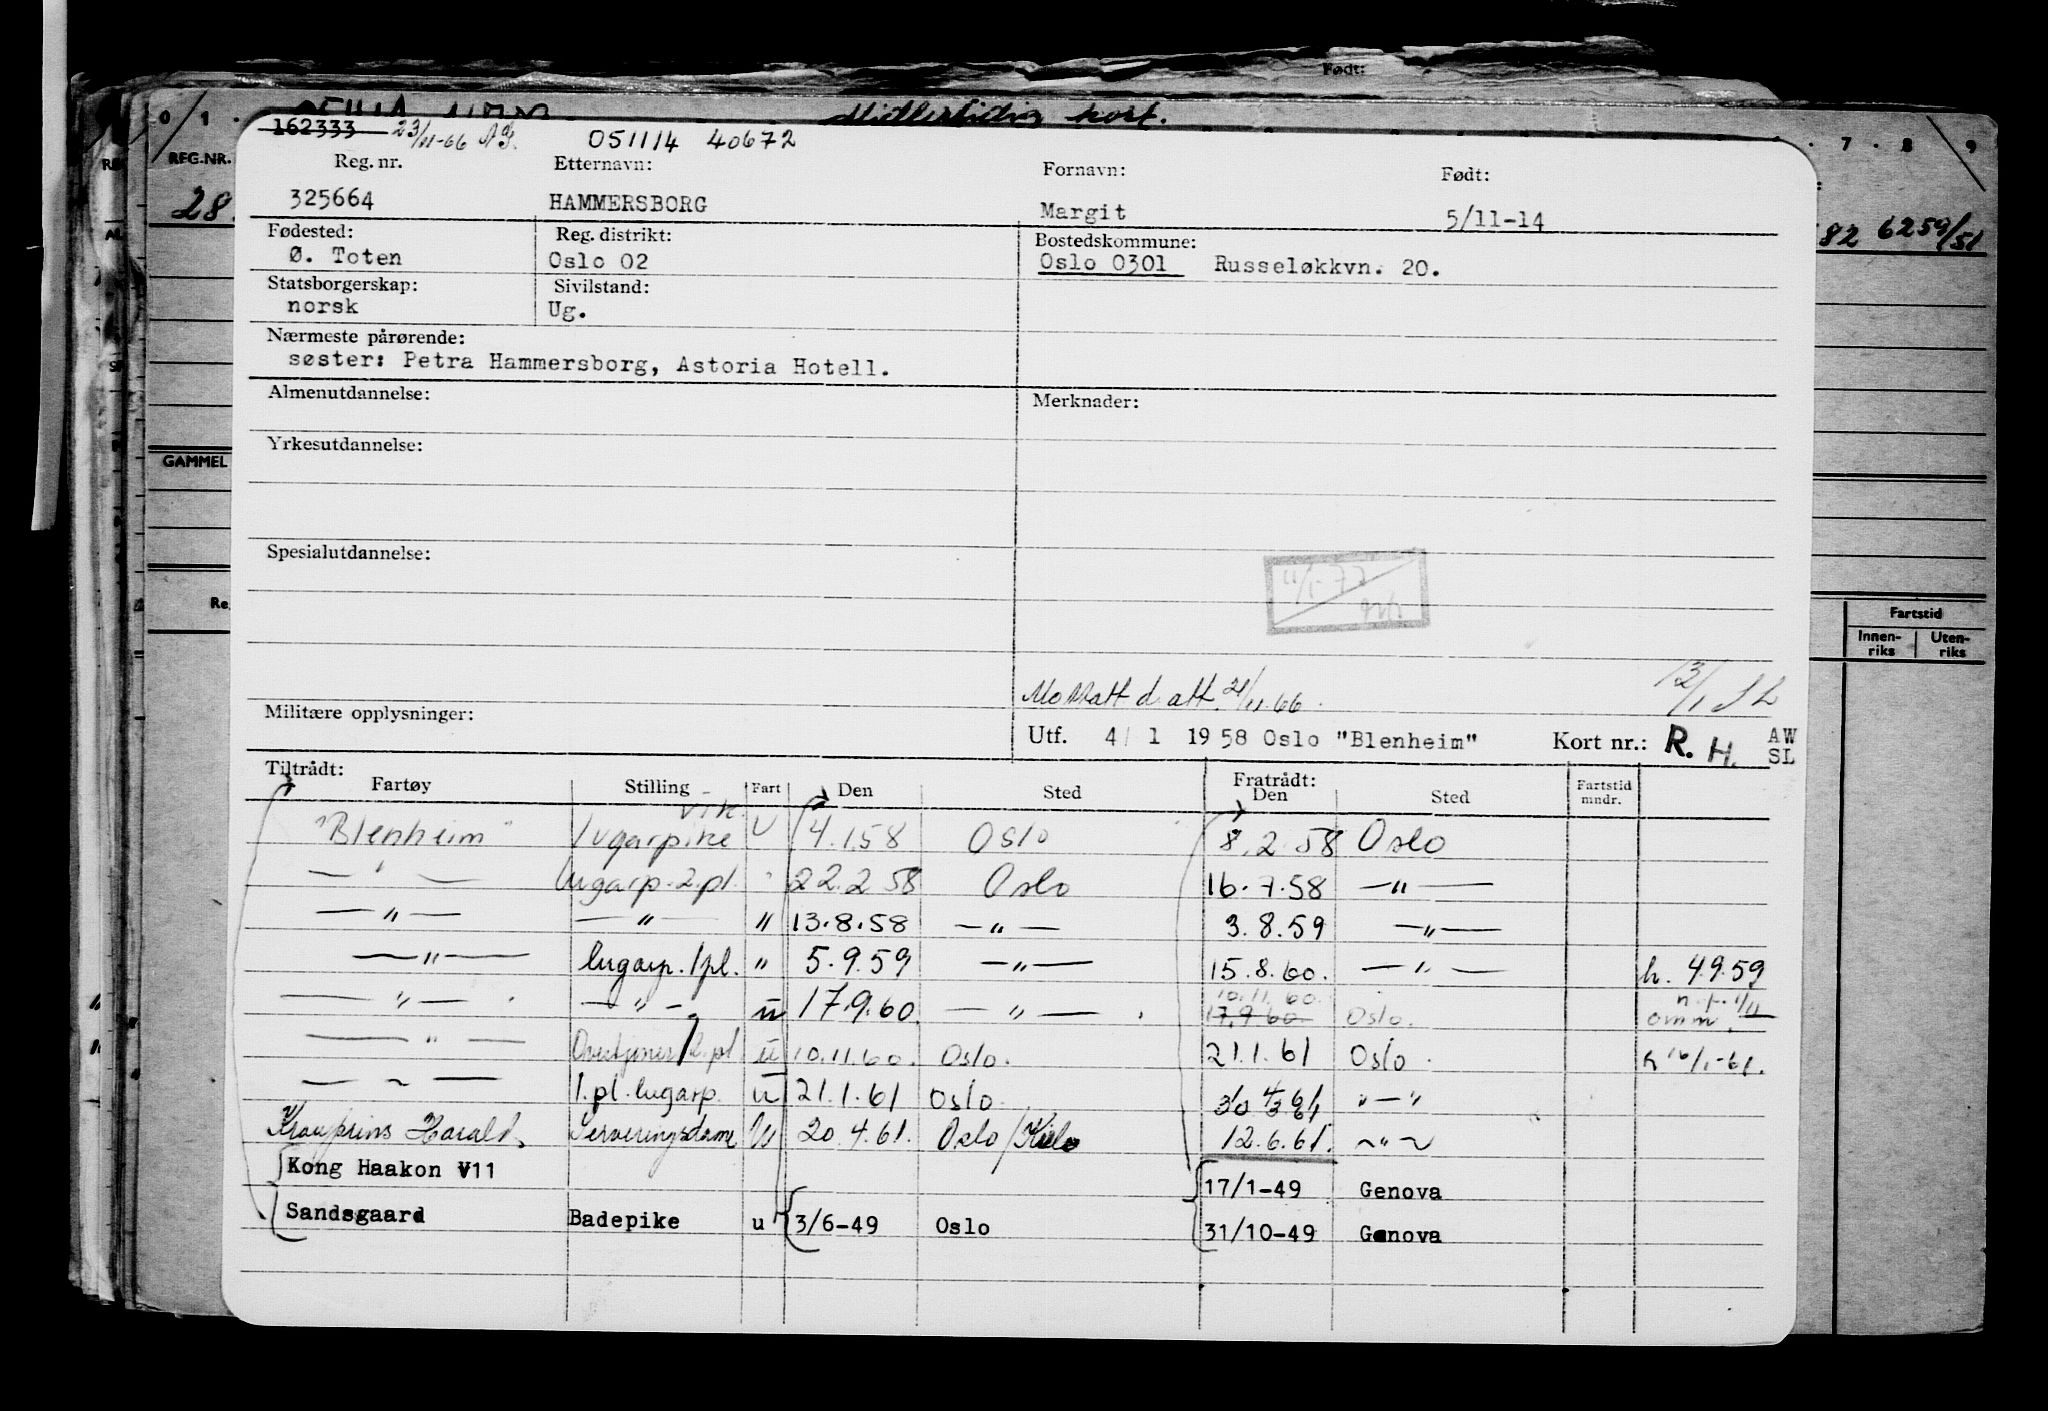 Født:
Midlertidig kort.
0 1 7 8 9
162333 23/11-66 051114 40672
REG.NR. Reg. nr. Etternavn: Fornavn: Født:
28 325664 HAMMERSBORG Margit 5/11-14
82 6259/51
Fødested: Reg. distrikt: Bostedskommune:
Ø. Toten Oslo 02 Oslo 0301 Russeløkkvn. 20.
Statsborgerskap: Sivilstand:
norsk Ug.
Nærmeste pårørende:
søster: Petra Hammersborg, Astoria Hotell.
Almenutdannelse: Merknader:
Yrkesutdannelse:
GAMMEL
Spesialutdannelse:
11/1-77
Fartstid
Innen-riks Uten-riks
Mo Matt d. att. 21/11.66.
Militære opplysninger:
Utf. 4/ 1 1958 Oslo "Blenheim" Kort nr.: R. H. AW SL
Tiltrådt: Fratrådt:
Fartøy Stilling Fart Den Sted Den Sted Fartstid mndr.
"Blenheim" vik. lugarpike U 4.1.58 Oslo 8.2.58 Oslo
— " — lugarp. 2.pl. " 22.2.58 Oslo 16.7.58 — " —
— " — — " — " 13.8.58 — " — 3.8.59 — " —
— " — lugarp. 1pl. " 5.9.59 — " — 15.8.60. — " — h. 4.9.59
— " — — " — u 17.9.60. — " — 10.11.60. 17.9.60. Oslo. n.p. 1/11 omm.
— " — 2.pl. u 10.11.60. Oslo. 21.1.61 Oslo. h 16/1-61.
— " — 1.pl. lugarp. u 21.1.61 Oslo " — "
Kronprins Harald Serveringsdame U 20.4.61. Oslo/Kiel 12.6.61. — " —
Kong Haakon V11 17/1-49 Genova
Sandsgaard Badepike u 3/6-49 Oslo 31/10-49 Genova